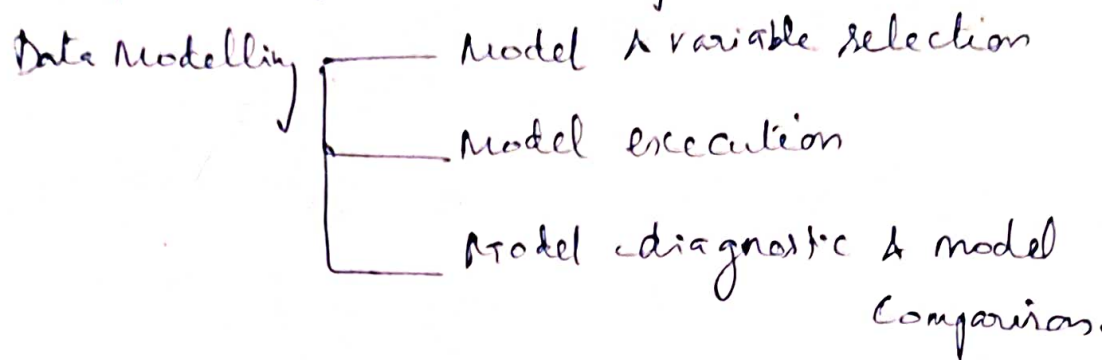 Data Modelling
Model & variable selection
Model execution
Model diagnostic & model
Comparison.